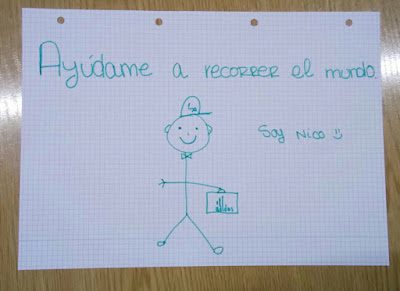 Ayúdame a recorrer el mundo.
Soy Nico :)